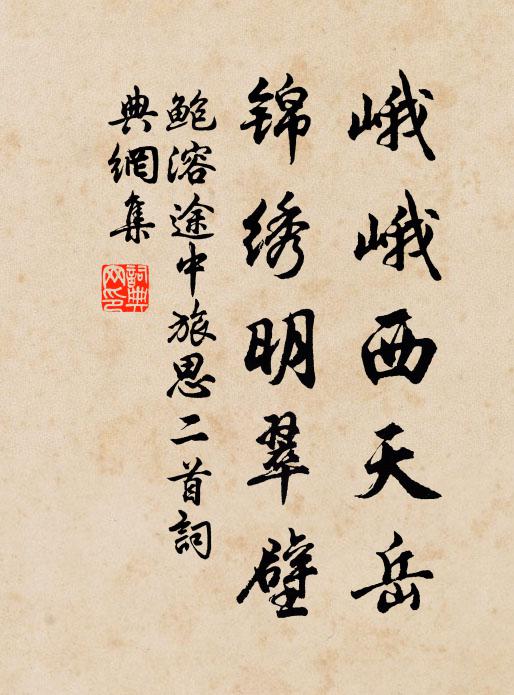 峨峨西天岳
锦绣明翠壁
鲍溶途中旅思二首詞
典網集
詞典网印